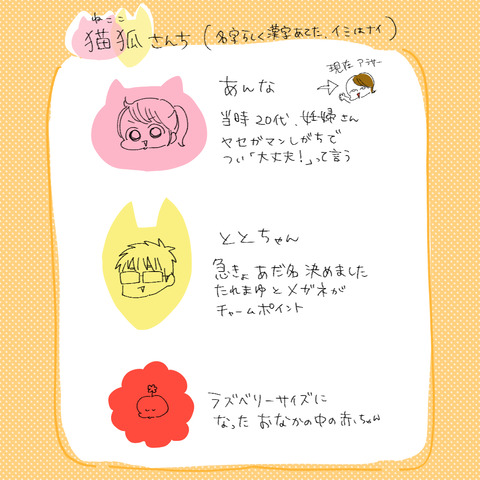 ねここ
猫狐さんち(名字らしく漢字あてた、イミはナイ)
現在 アラサー
あんな
当時20代、妊婦さん
ヤセガマンしがちで
つい「大丈夫!」って言う
ととちゃん
急きょ あだ名 決めました
たれまゆとメガネが
チャームポイント
ラズベリーサイズに
なった おなかの中の赤ちゃん